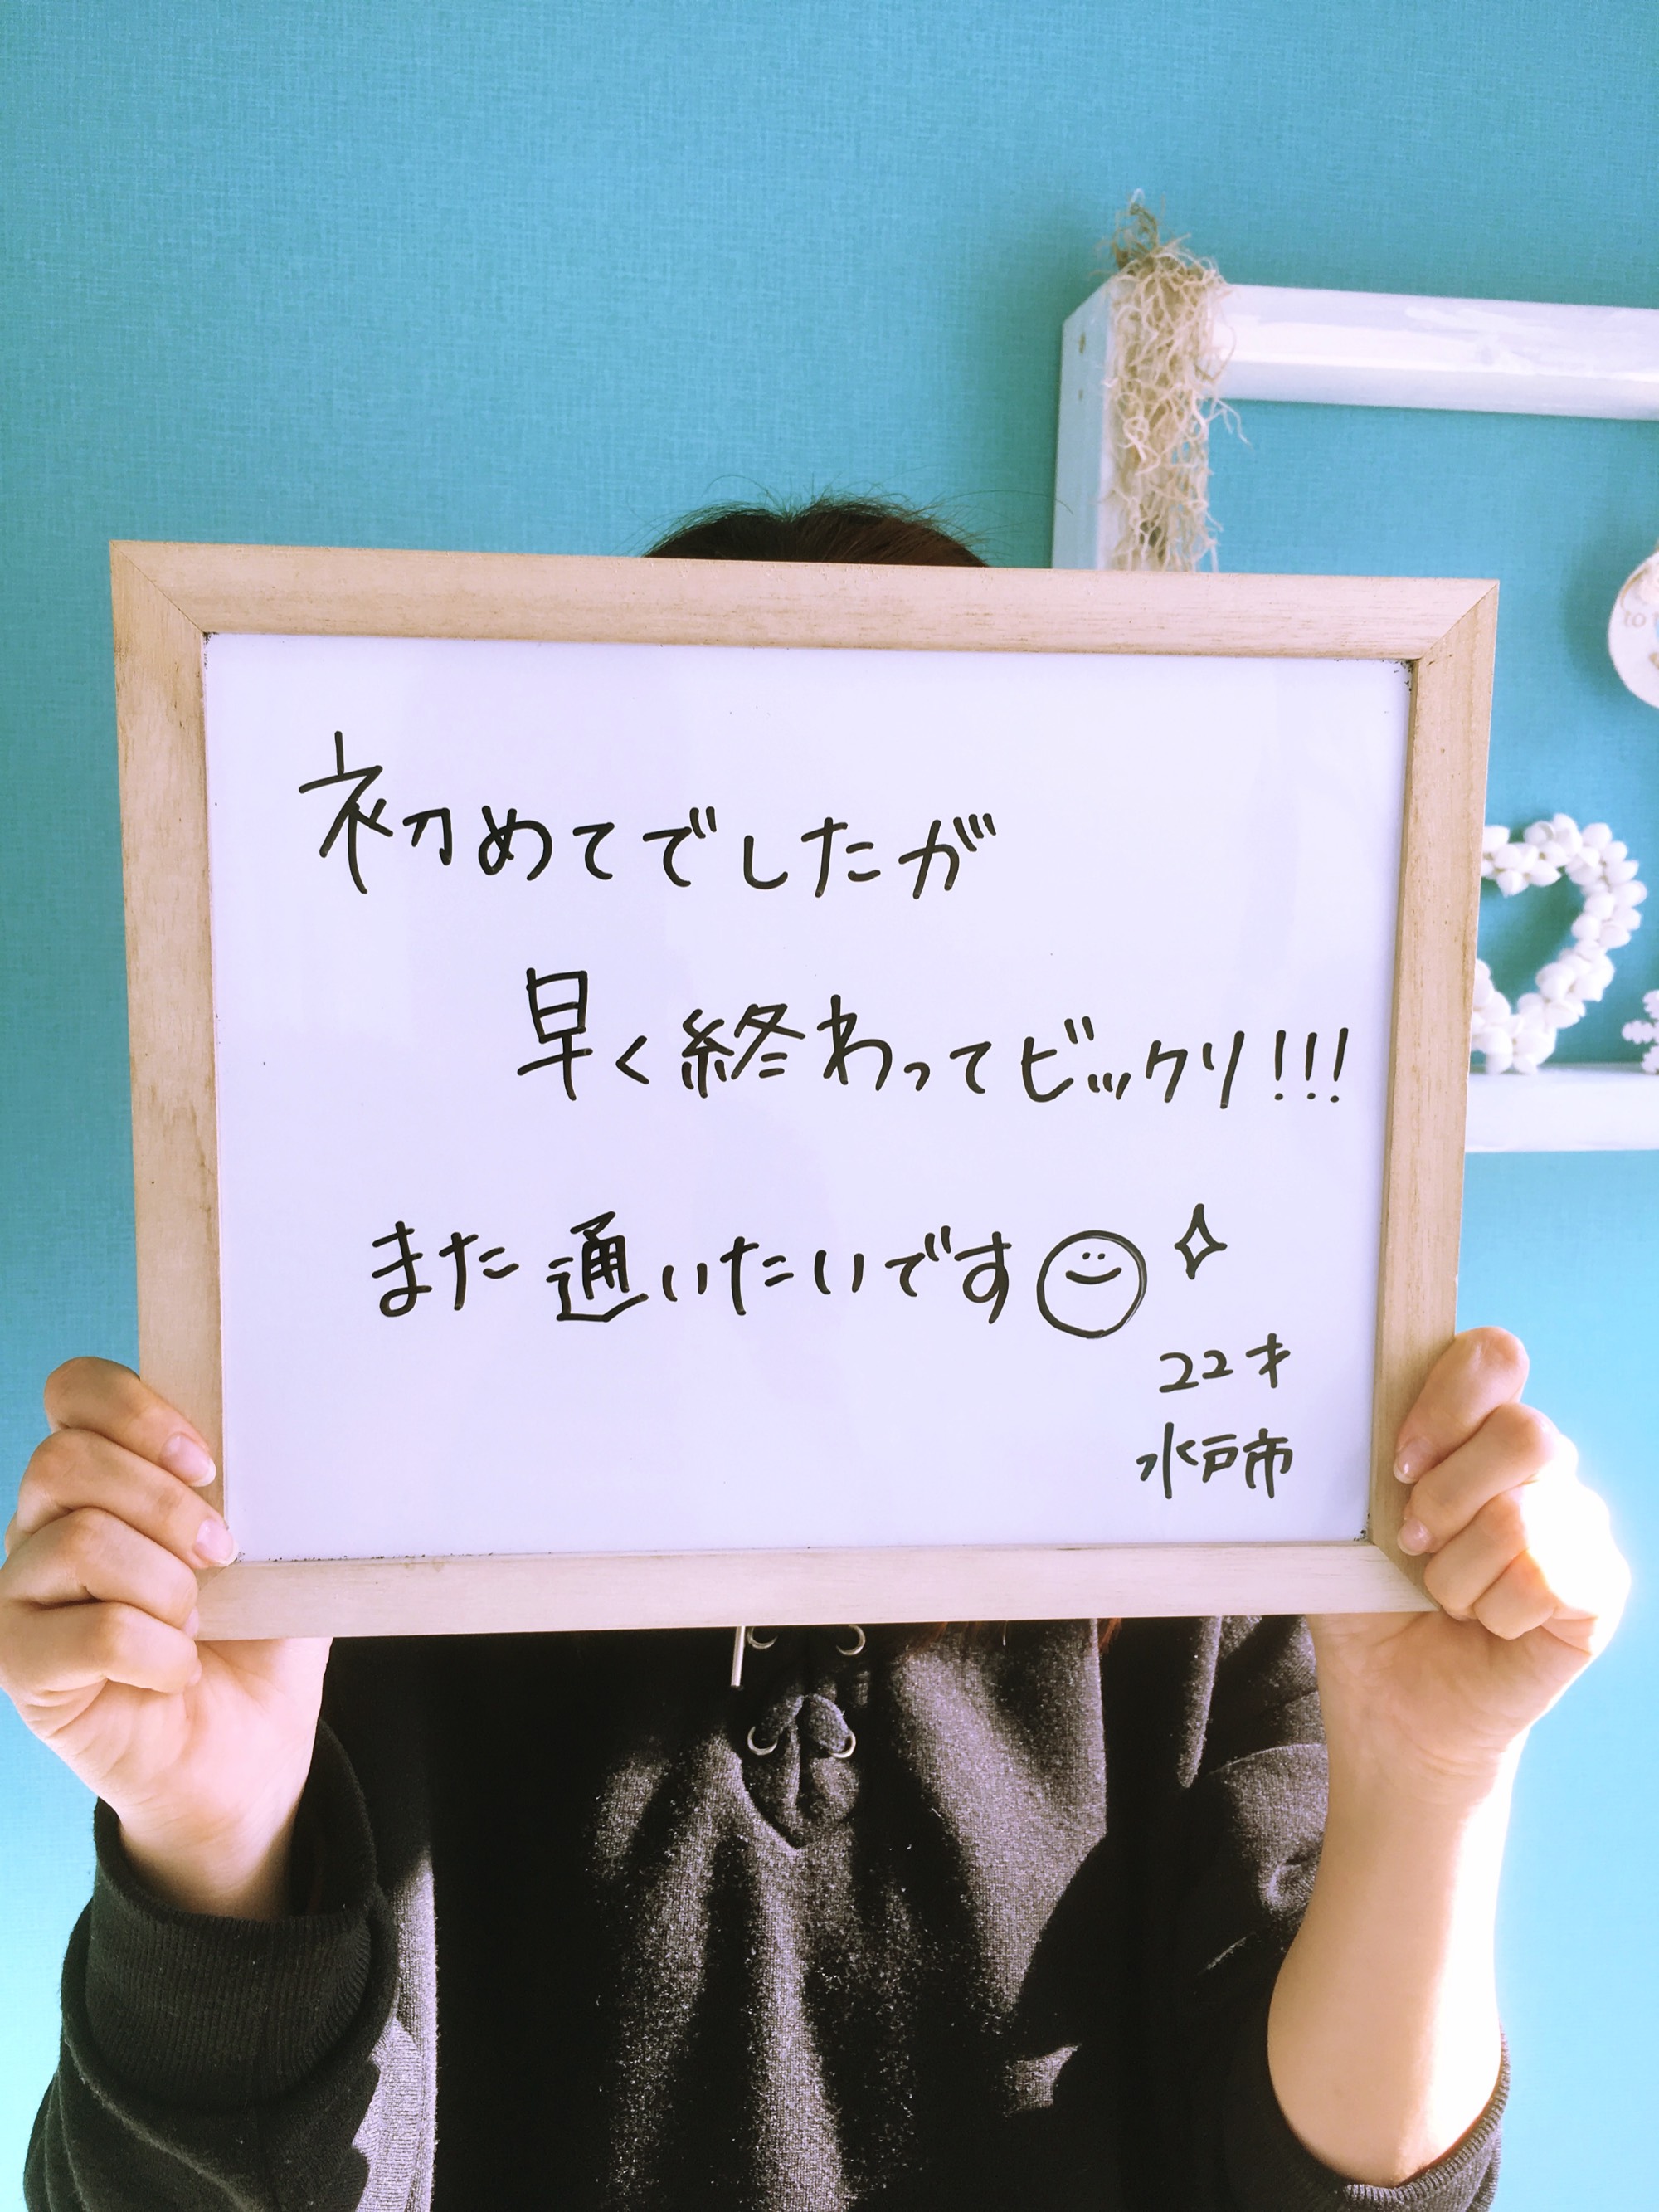 初めてでしたが
早く終わってビックリ!!!
また通いたいです
22才
水戸市